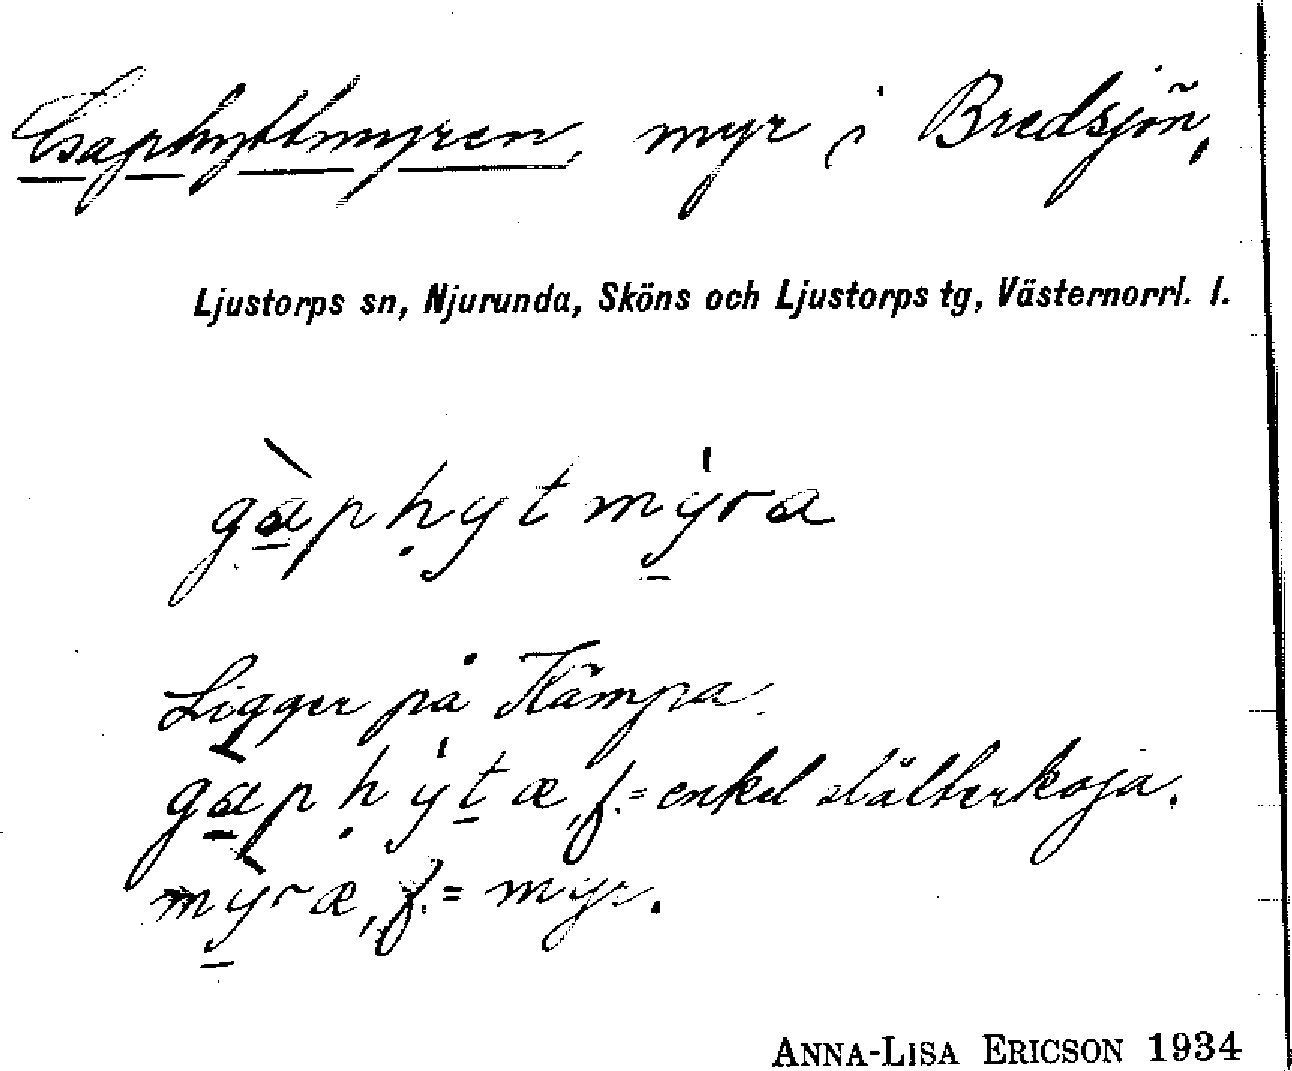 Gaphyttmyren, myr i Bredsjön,
Ljustorps sn, Njurunda, Sköns och Ljustorps tg, Västernorrl. l.
gàphytmýra
Ligger på Kämpa.
gàphýtæ, f. = enkel slåtterkoja.
mỳræ, f. = myr.
ANNA-LISA ERICSON 1934